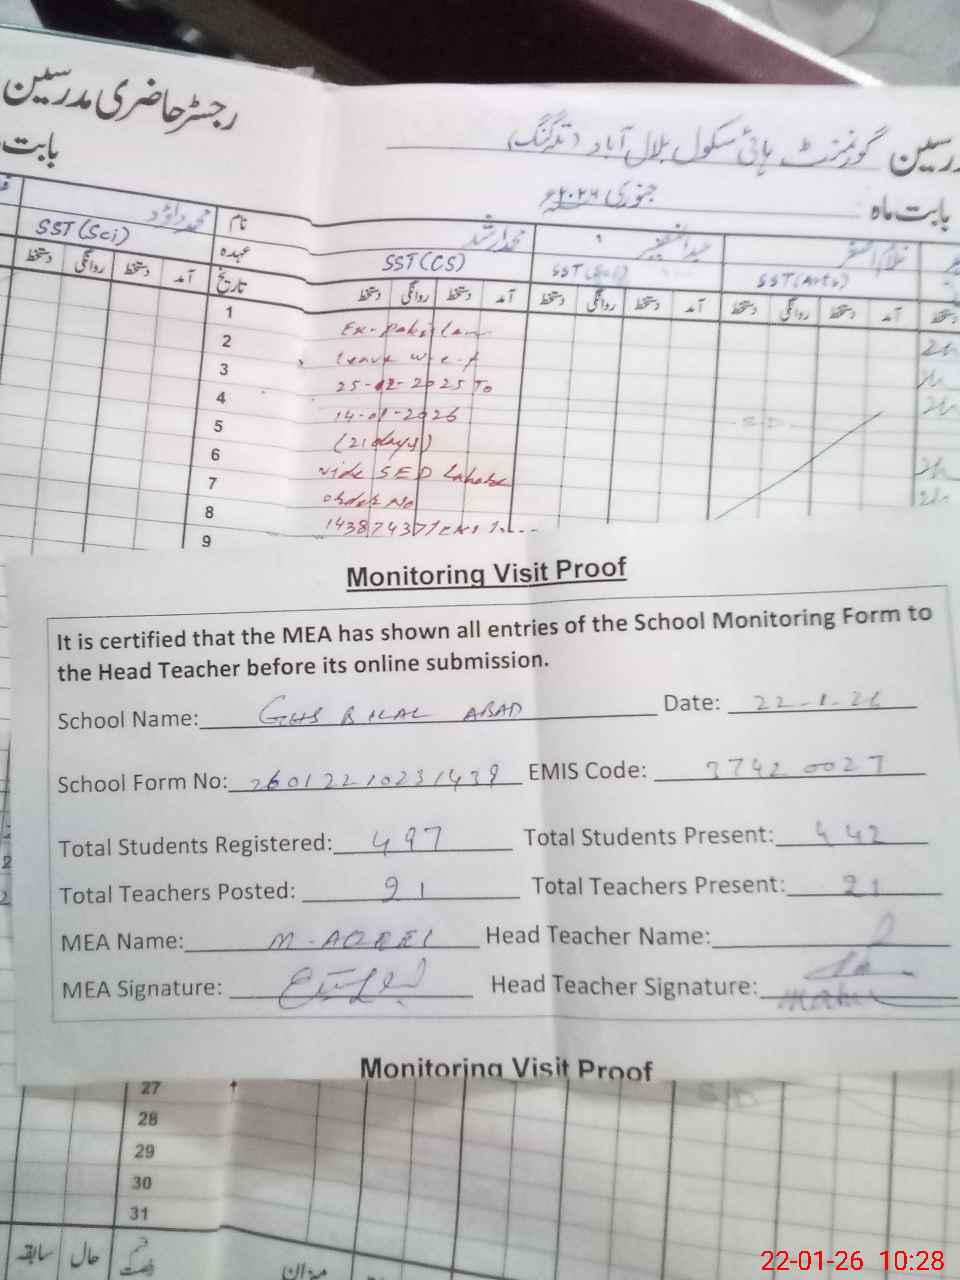 رجسٹر حاضری مدرسین
بابت
مدرسین گورنمنٹ ہائی سکول بلال آباد (تلہ گنگ)
بابت ماہ جنوری ۲۰۲۶ء
نام
محمد داؤد
محمد ارشد
عہدہ
SST (Sci)
SST (CS)
SST (Sci)
SST (Arts)
تاریخ
آمد دستخط روانگی دستخط
آمد دستخط روانگی دستخط
آمد دستخط روانگی دستخط
آمد دستخط روانگی دستخط
دستخط
1
2
3
4
5
6
7
8
9
Ex-Pakistan
leave w.e.f
25-12-2025 To
14-01-2026
(21 days)
vide SED Lahore
order No
Monitoring Visit Proof
It is certified that the MEA has shown all entries of the School Monitoring Form to
the Head Teacher before its online submission.
School Name: GHS BILAL ABAD Date: 22-1-26
School Form No: 26012210231439 EMIS Code: 37420027
Total Students Registered: 497 Total Students Present: 442
Total Teachers Posted: 21 Total Teachers Present: 21
MEA Name: M-AQEEL Head Teacher Name:
MEA Signature: Head Teacher Signature:
Monitoring Visit Proof
27
28
29
30
31
سابقہ حال میزان
22-01-26 10:28